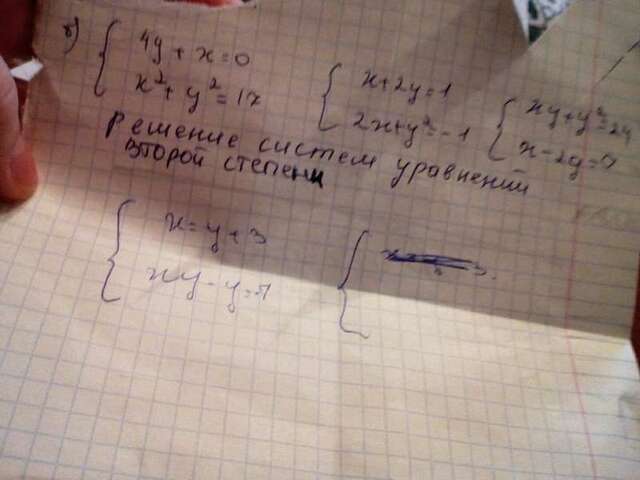 б) 4y + x = 0
x² + y² = 17
x + 2y = 1
2x + y² = -1
xy + y² = 24
x - 2y =
Решение систем уравнений
второй степени
x = y + 3
xy - y =